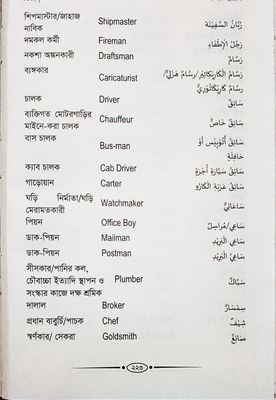 শিপমাস্টার/জাহাজ Shipmaster رُبَّانُ السَّفِيْنَةِ
নাবিক
দমকল কর্মী Fireman رَجُلُ الْإِطْفَاءِ
নকশা অঙ্কনকারী Draftsman رَسَّامٌ
ব্যঙ্গকার Caricaturist رَسَّامُ الْكَارِيْكَاتِيْرِ/رَسَّامٌ هَزْلِيٌّ/
رَسَّامٌ كَارِيْكَاتُوْرِيٌّ
চালক Driver سَائِقٌ
ব্যক্তিগত মোটরগাড়ির Chauffeur سَائِقٌ خَاصٌّ
মাইনে-করা চালক
বাস চালক Bus-man سَائِقُ أُتُوْبِيْسٍ أَوْ
حَافِلَةٍ
ক্যাব চালক Cab Driver سَائِقُ سَيَّارَةِ أُجْرَةٍ
গাড়োয়ান Carter سَائِقُ عَرَبَةِ الْكَارُو
ঘড়ি নির্মাতা/ঘড়ি Watchmaker سَاعَاتِيٌّ
মেরামতকারী
পিয়ন Office Boy سَاعِي/مُرَاسِلٌ
ডাক-পিয়ন Mailman سَاعِي الْبَرِيْدِ
ডাক-পিয়ন Postman سَاعِي الْبَرِيْدِ
সীসকার/পানির কল,
চৌবাচ্চা ইত্যাদি স্থাপন ও Plumber سَبَّاكٌ
সংস্কার কাজে দক্ষ শ্রমিক
দালাল Broker سِمْسَارٌ
প্রধান বাবুর্চি/পাচক Chef شِيْفٌ
স্বর্ণকার/ সেকরা Goldsmith صَائِغٌ
২২৩